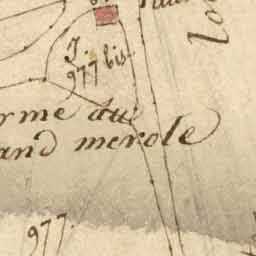 J.
977 bis.
rme du
and merole
977.